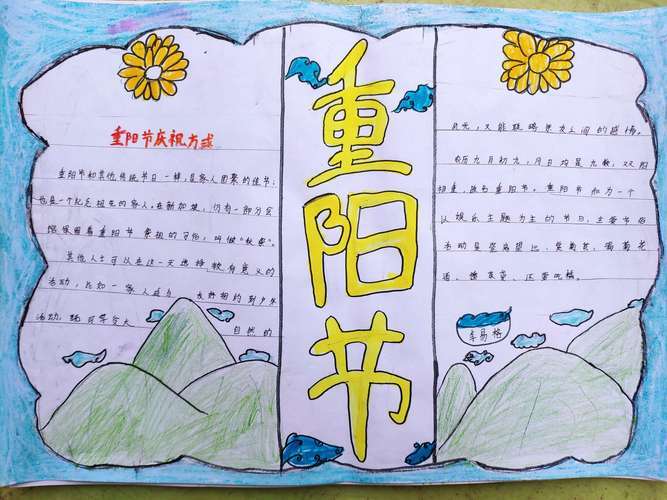 重阳节庆祝方式
重阳节和其他传统节日一样,是家人团聚的佳节;
也是一个纪念祖先的家人。在新加坡,仍有一部分华
保留着重阳节祭祖的习俗,叫做"秋祭"。
其他人士可以在这一天选择较有意义的
活动,比如一家人或与友好相约到户外
活动,既可享受大自然的
重
阳
节
此光,又能联络亲友之间的感情。
农历九月初九,月日均是九数,双阳
相重,故名重阳节。重阳节和为一个
以娱乐主题为主的节日,主要节俗
活动是登高望远、赏菊花、喝菊花
酒、插茱萸、还要吃糕。
李易格